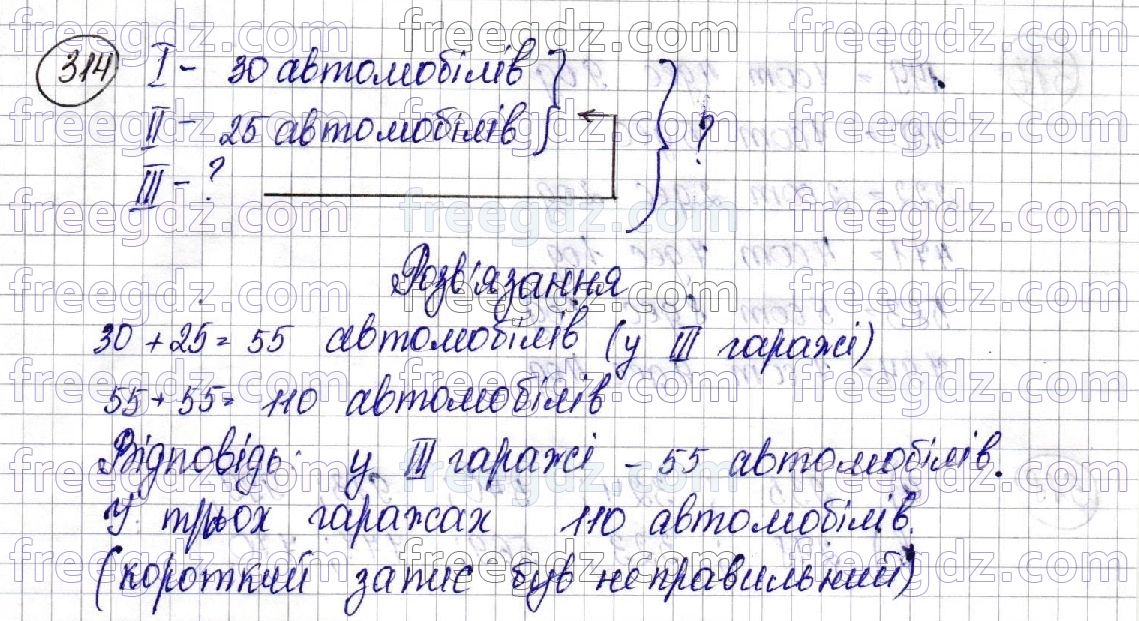 314 I - 30 автомобілів
II - 25 автомобілів ?
III - ?
Розв'язання
30 + 25 = 55 автомобілів (у III гаражі)
55 + 55 = 110 автомобілів
Відповідь: у III гаражі - 55 автомобілів.
У трьох гаражах 110 автомобілів.
(короткий запис був неправильний)